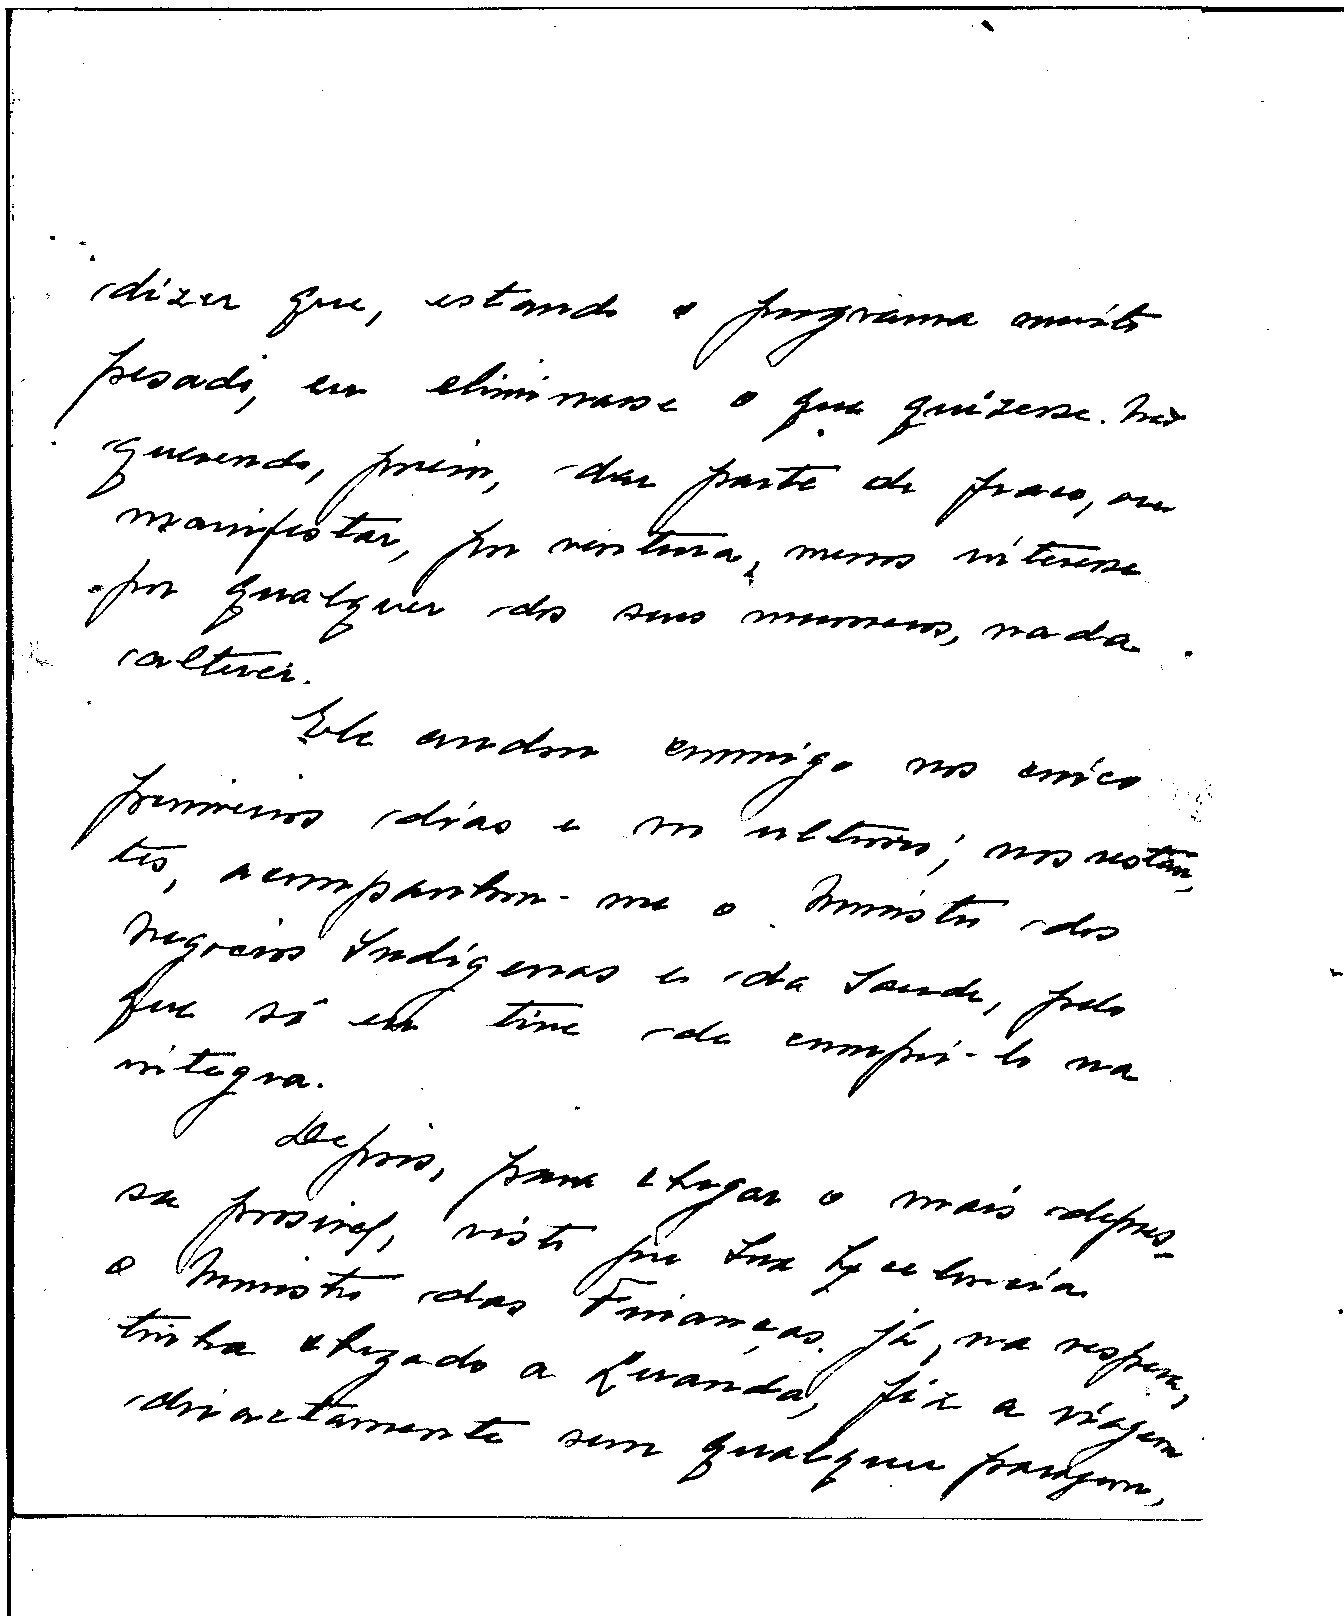 dizer que, estando o programa muito
pesado, eu eliminasse o que quizesse. Não
querendo, porém, dar parte de fraco, ou
manifestar, por ventura, menos interesse
por qualquer dos seus numeros, nada
alterei.
Ele andou commigo nos cinco
primeiros dias e no ultimo; nos restan,
tes, acompanhou-me o Ministro dos
Negocios Indigenas e da Saude, pelo
que só eu tive de cumpri-lo na
integra.
Depois, para chegar o mais depres-
sa possivel, visto que Sua Excelencia
o Ministro das Finanças já, na vespera,
tinha chegado a Luanda, fiz a viagem
directamente sem qualquer paragem,